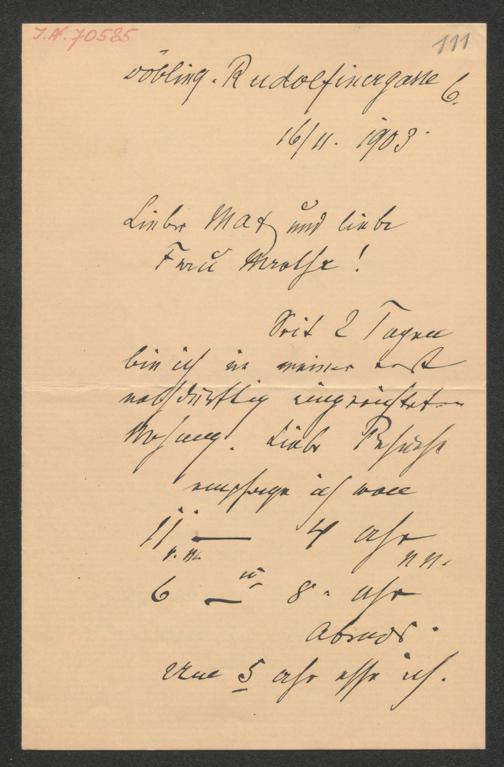 I.N. 70585
111
Döbling. Rudolfinergasse 6.
16/11. 1903.
Lieber Max und liebe
Frau Marthe!
Seit 2 Tagen
bin ich in meiner erst
nothdürftig eingerichteten
Wohnung. Liebe Besuche
empfange ich von
11 — 4 Uhr
v. m. n. n.
6 — 8 Uhr
Abends.
Um 5 Uhr esse ich.